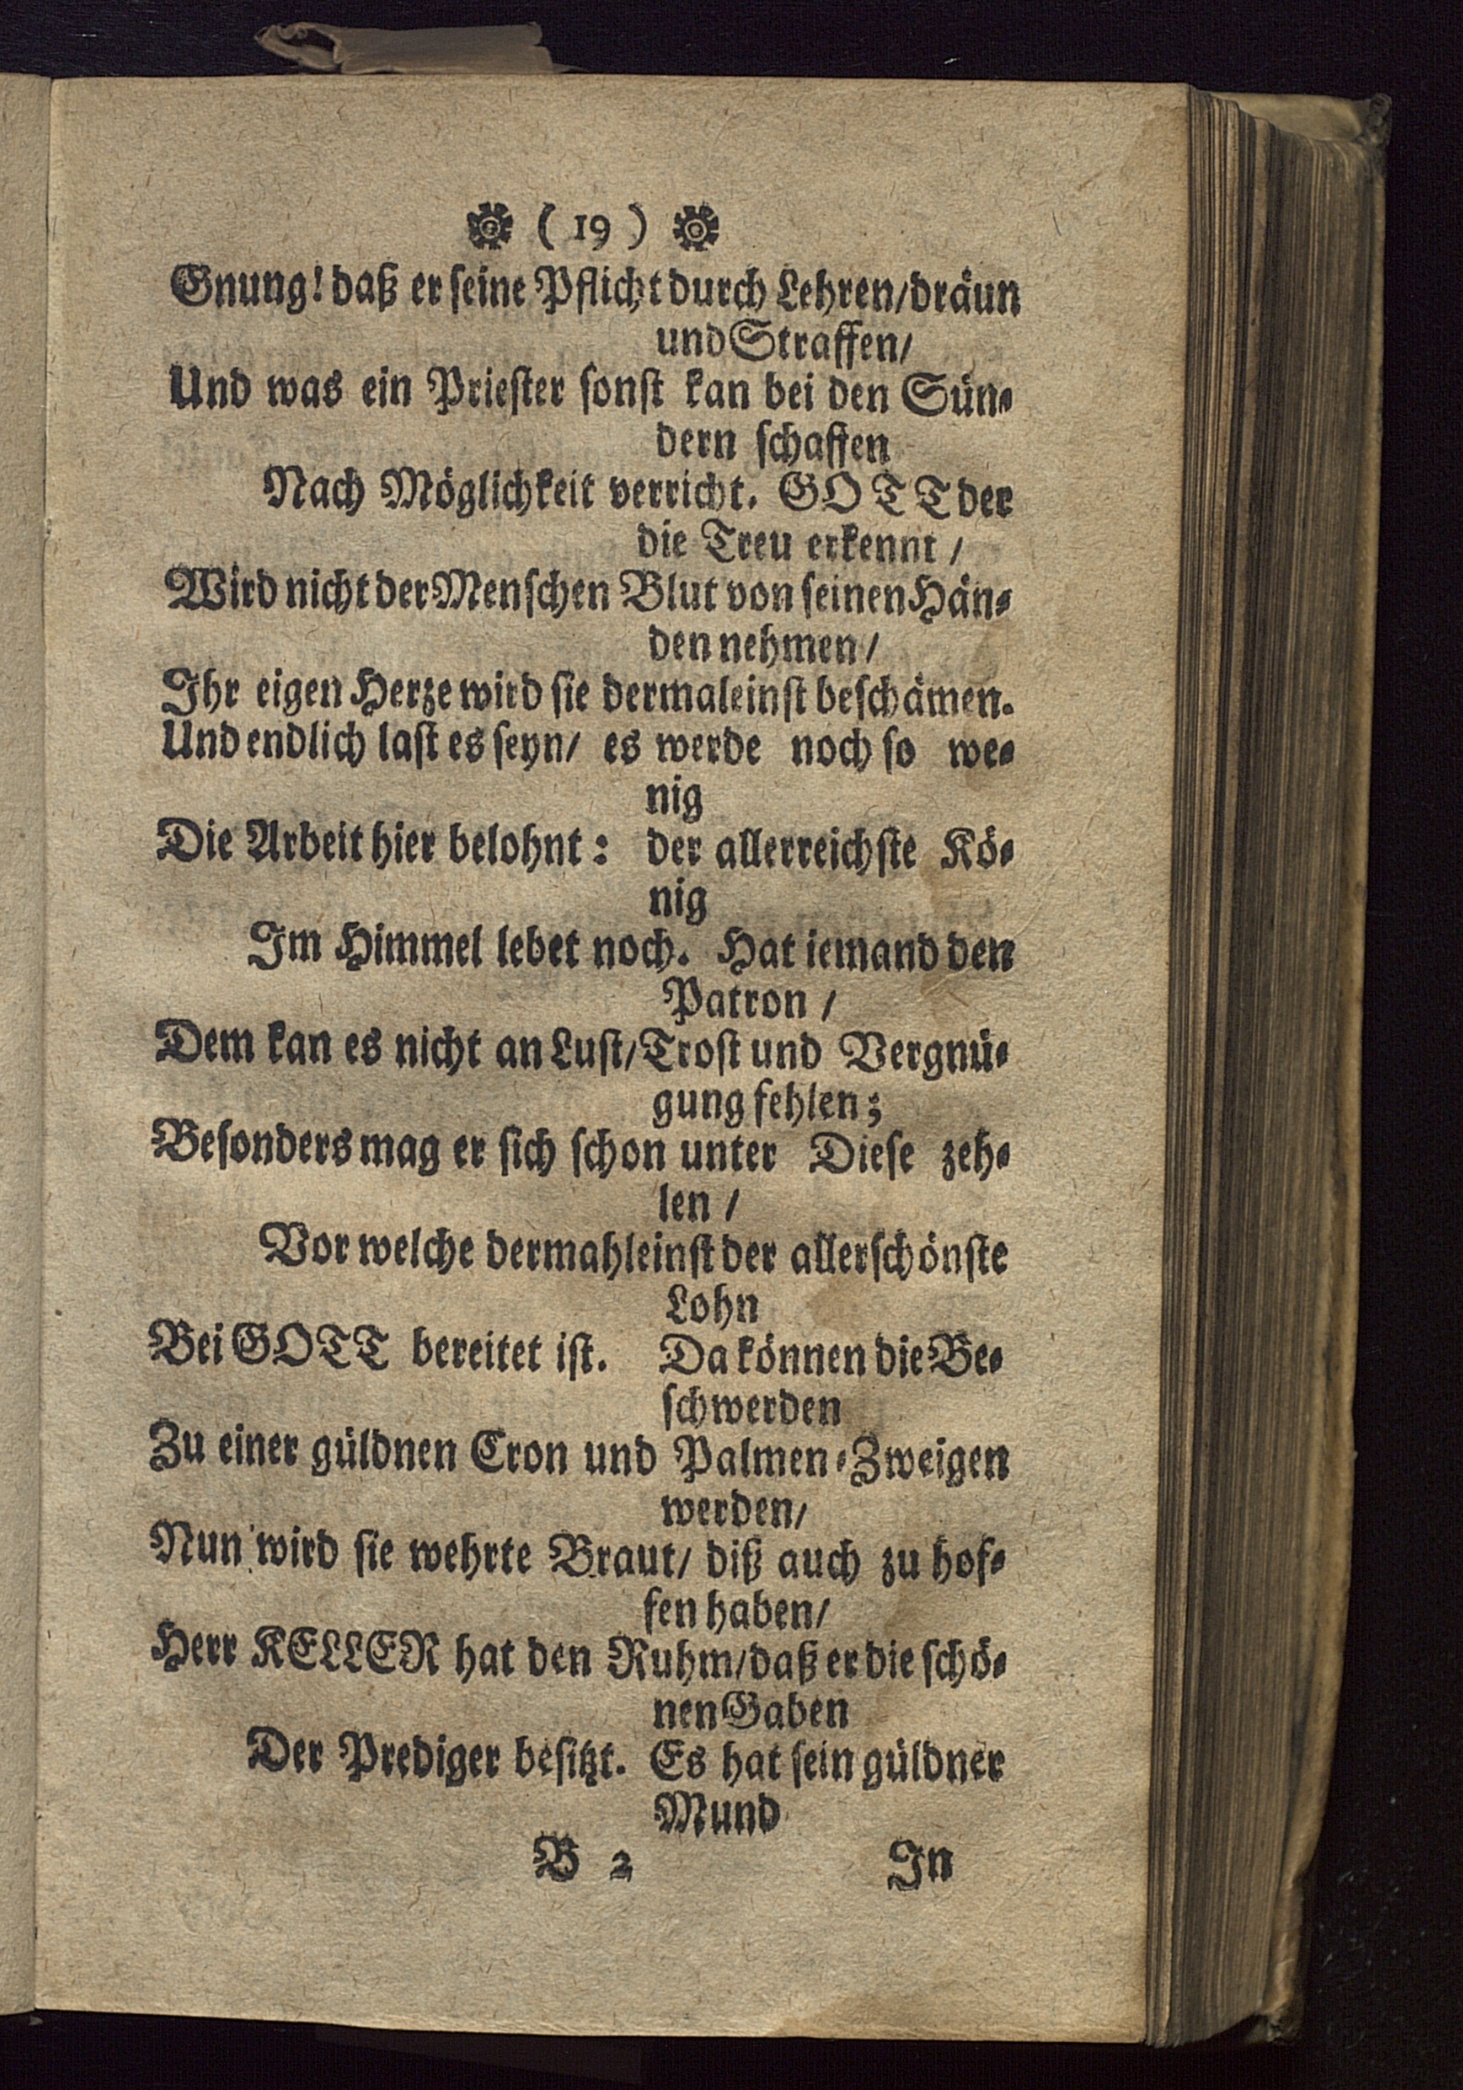 ( 19 )
Gnung! daß er seine Pflicht durch Lehren/dräun
und Straffen/
Und was ein Priester sonst kan bei den Sün-
dern schaffen
Nach Möglichkeit verricht. GOTT der
die Treu erkennt /
Wird nicht der Menschen Blut von seinen Hän-
den nehmen/
Ihr eigen Herze wird sie dermaleinst beschämen.
Und endlich last es seyn/ es werde noch so we-
nig
Die Arbeit hier belohnt: der allerreichste Kö-
nig
Im Himmel lebet noch. Hat iemand den
Patron /
Dem kan es nicht an Lust/Trost und Vergnü-
gung fehlen;
Besonders mag er sich schon unter Diese zeh-
len /
Vor welche dermahleinst der allerschönste
Lohn
Bei GOTT bereitet ist. Da können die Be-
schwerden
Zu einer güldnen Cron und Palmen-Zweigen
werden/
Nun wird sie wehrte Braut/ diß auch zu hof-
fen haben/
Herr KELLER hat den Ruhm/daß er die schö-
nen Gaben
Der Prediger besitzt. Es hat sein güldner
Mund
B 2 In